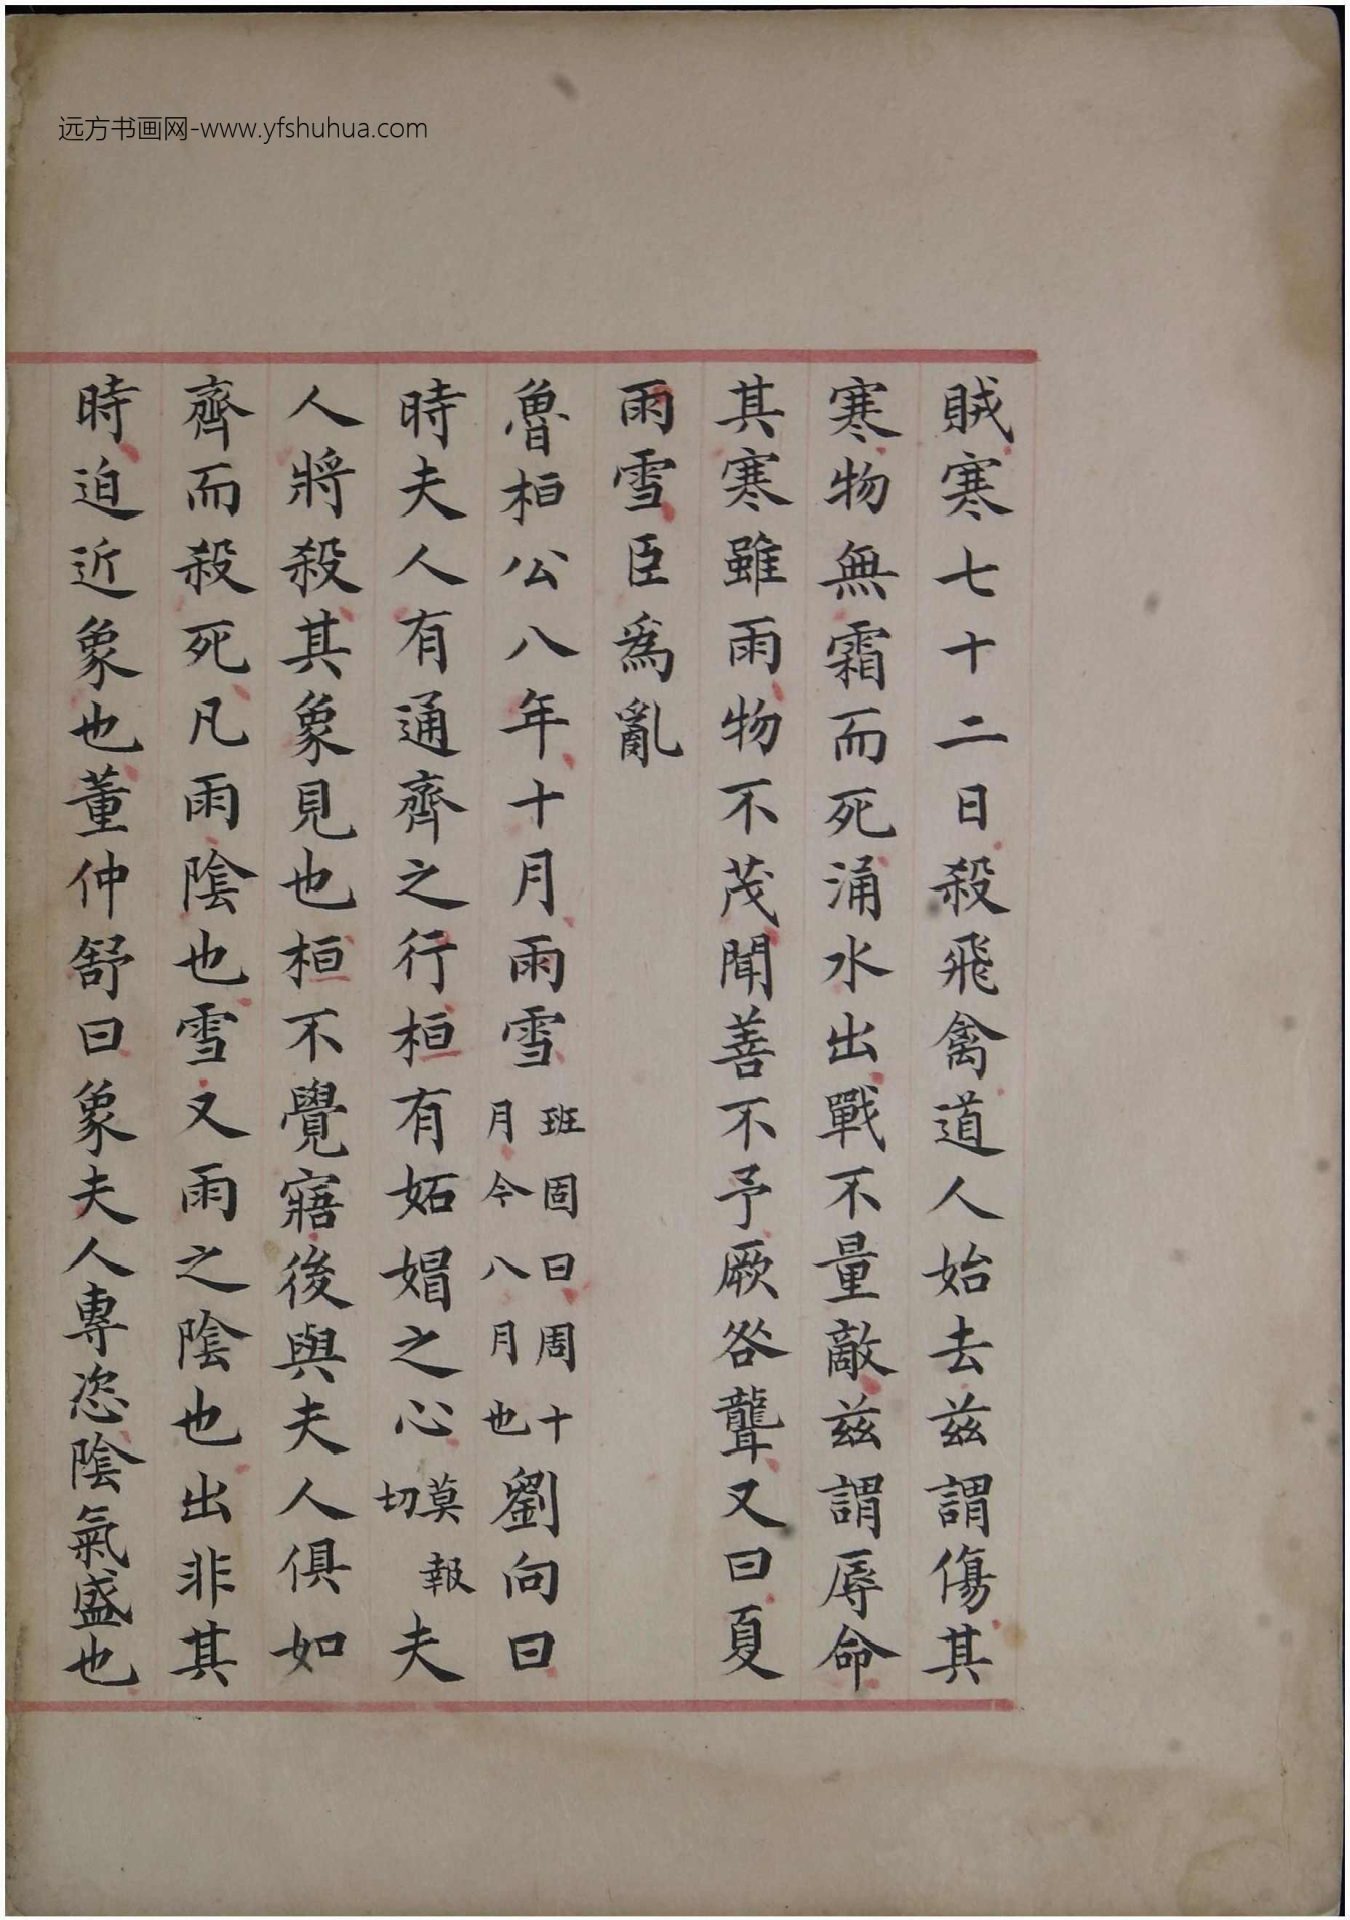 远方书画网-www.yfshuhua.com
賊寒七十二日殺飛禽道人始去茲謂傷其
寒物無霜而死涌水出戰不量敵茲謂辱命
其寒雖雨物不茂聞善不予厥咎聾又曰夏
雨雪臣為亂
魯桓公八年十月雨雪班固曰周十月今八月也劉向曰
時夫人有通齊之行桓有妬媢之心莫報切夫
人將殺其象見也桓不覺寤後與夫人俱如
齊而殺死凡雨陰也雪又雨之陰也出非其
時迫近象也董仲舒曰象夫人專恣陰氣盛也